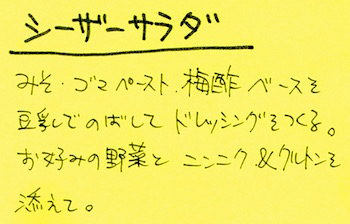 シーザーサラダ
みそ・ゴマペースト、梅酢ベースを
豆乳でのばしてドレッシングをつくる。
お好みの野菜とニンニク&クルトンを
添えて。